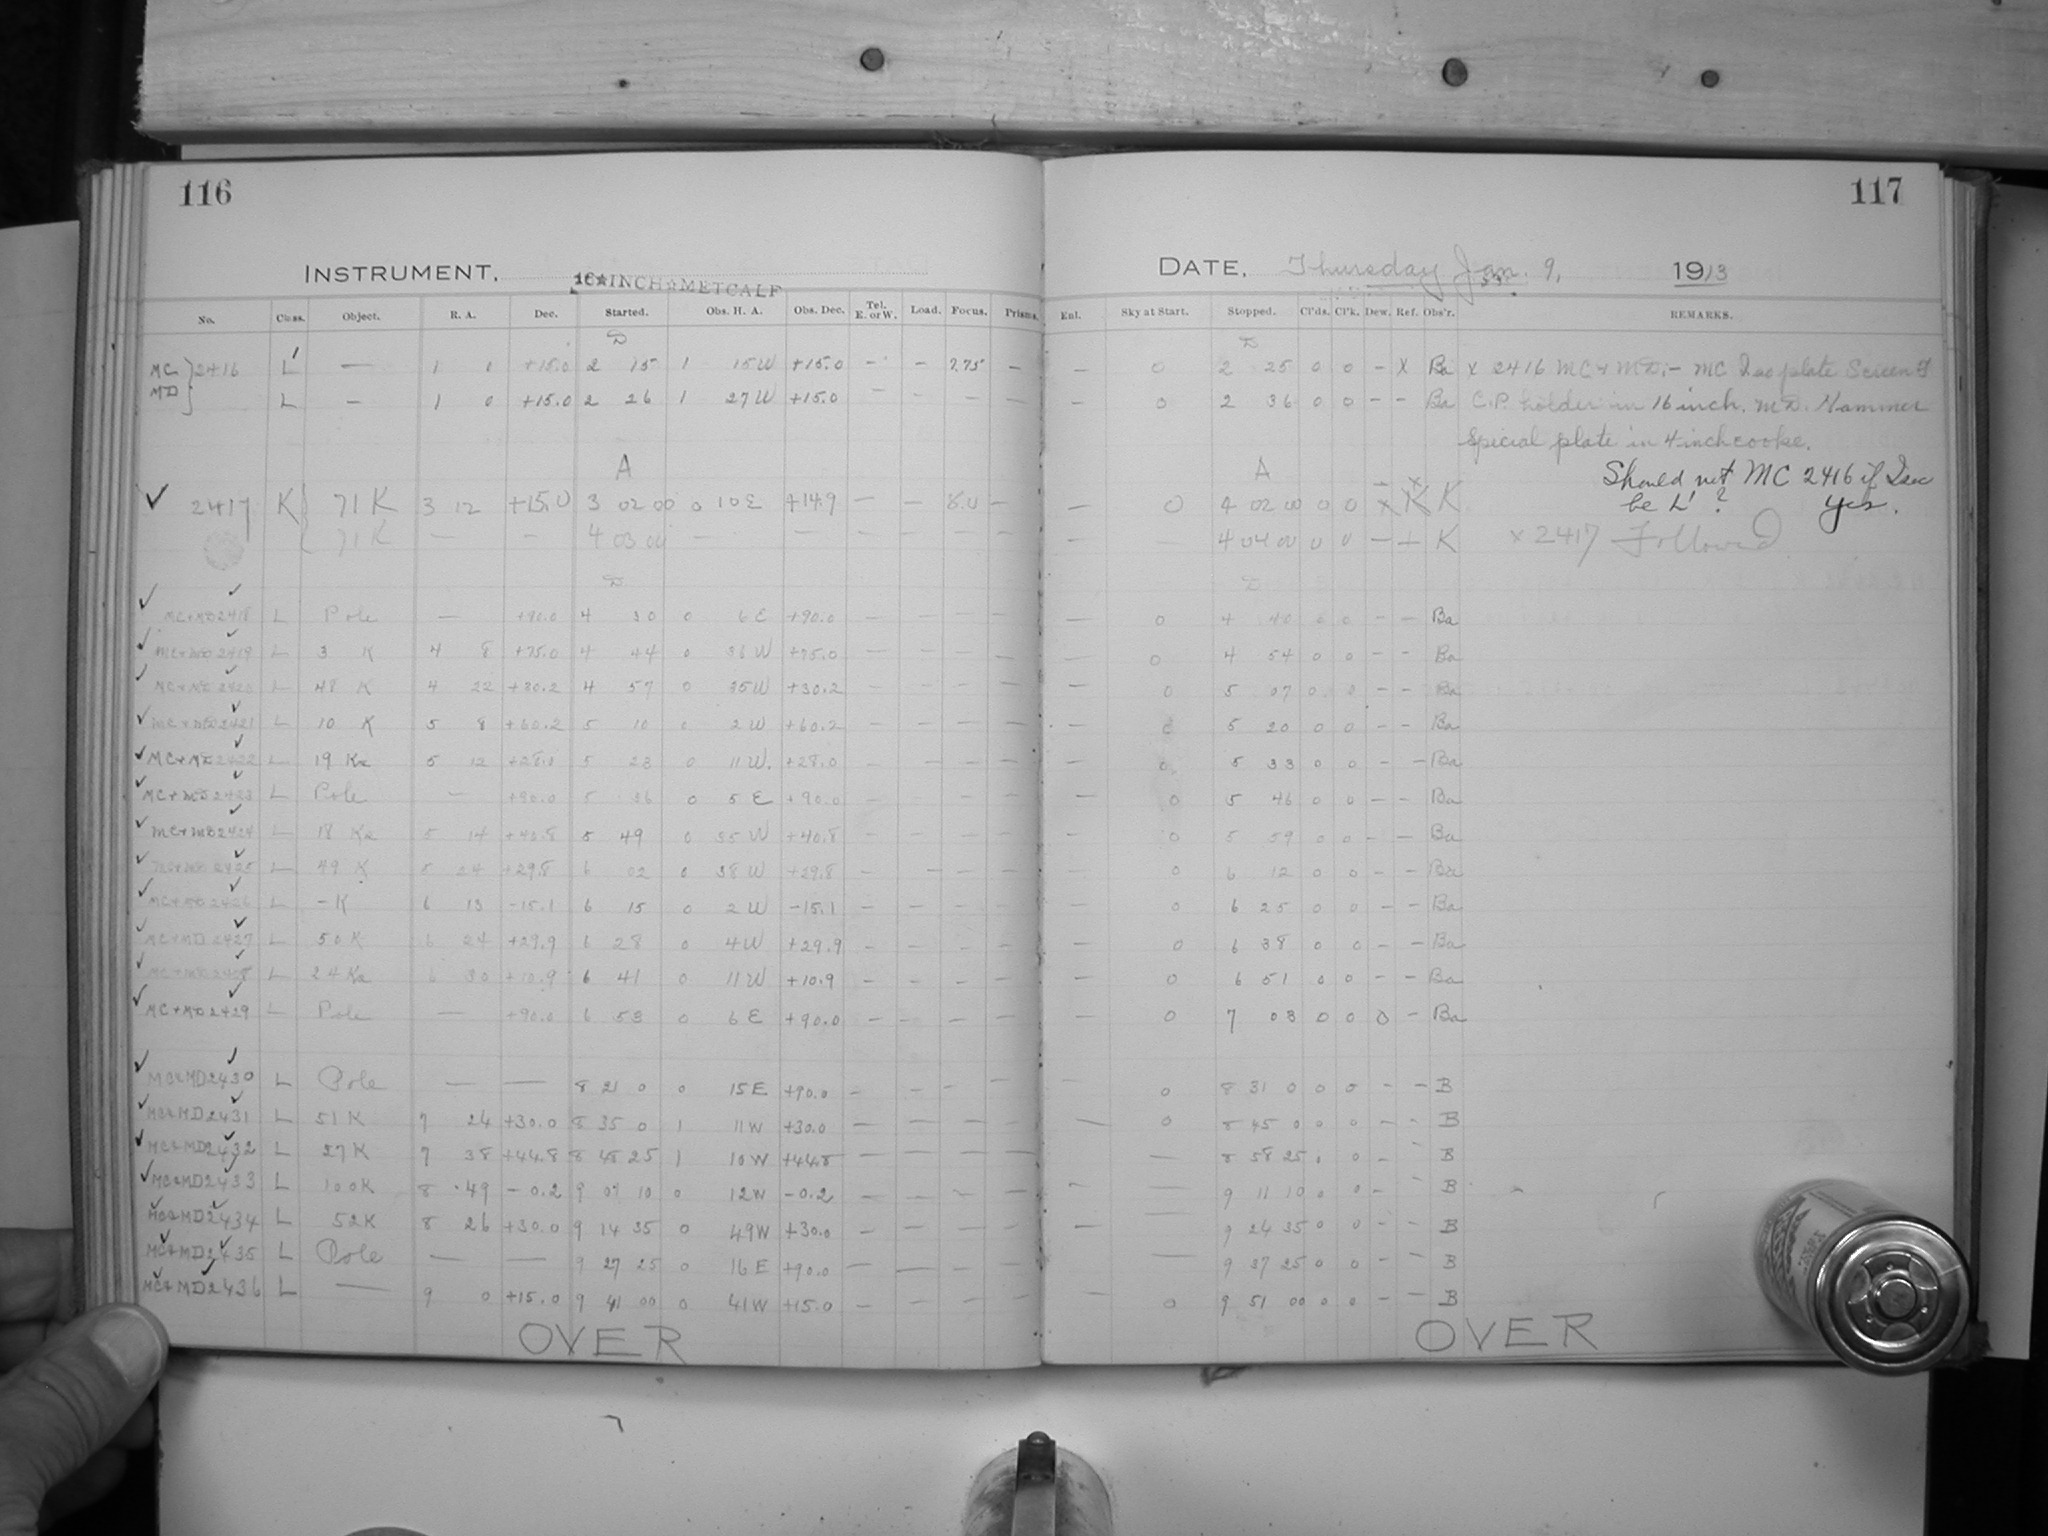 116
INSTRUMENT, 16☆INCH☆METCALF
No. Class. Object. R. A. Dec. Started. Obs. H. A. Obs. Dec. Tel. E. or W. Load. Focus. Prisms.
D
MC MD } 2416 L' — 1 1 +15.0 2 15 1 15W +15.0 - - 7.75 -
L — 1 0 +15.0 2 26 1 27W +15.0 - - - -
A
✓ 2417 K { 71K 3 12 +15.0 3 02 00 0 10E +14.9 — — 8.0 —
71K — — 4 03 00 — — — — — —
D
✓ MC+MD 2418 ✓ L Pole — +90.0 4 30 0 6E +90.0 - - - -
✓ MC+MD 2419 ✓ L 3 K 4 8 +75.0 4 44 0 36W +75.0 - - - -
✓ MC+MD 2420 ✓ L 48 K 4 22 +30.2 4 57 0 35W +30.2 - - - -
✓ MC+MD 2421 ✓ L 10 K 5 8 +60.2 5 10 0 2W +60.2 - - - -
✓ MC+MD 2422 ✓ L 19 Ka 5 12 +28.0 5 23 0 11W. +28.0 - - - -
✓ MC+MD 2423 ✓ L Pole — +90.0 5 36 0 5E +90.0 - - - -
✓ MC+MD 2424 ✓ L 18 Ka 5 14 +40.8 5 49 0 35W +40.8 - - - -
✓ MC+MD 2425 ✓ L 49 K 5 24 +29.8 6 02 0 38W +29.8 - - - -
✓ MC+MD 2426 ✓ L -K 6 13 -15.1 6 15 0 2W -15.1 - - - -
✓ MC+MD 2427 ✓ L 50K 6 24 +29.9 6 28 0 4W +29.9 - - - -
✓ MC+MD 2428 ✓ L 24Ka 6 30 +10.9 6 41 0 11W +10.9 - - - -
✓ MC+MD 2429 ✓ L Pole — +90.0 6 53 0 6E +90.0 - - - -
✓ MC&MD2430 ✓ L Pole — — 8 21 0 0 15E +90.0 - - - -
✓ MC&MD2431 ✓ L 51K 7 24 +30.0 8 35 0 1 11W +30.0 - - - -
✓ MC&MD2432 ✓ L 27K 7 38 +44.8 8 48 25 1 10W +44.8 - - - -
✓ MC&MD2433 ✓ L 100K 8 49 -0.2 9 01 10 0 12W -0.2 - - - -
✓ MC&MD2434 ✓ L 52K 8 26 +30.0 9 14 35 0 49W +30.0 - - - -
✓ MC&MD2435 ✓ L Pole — — 9 27 25 0 16E +90.0 - - - -
✓ MC&MD2436 ✓ L — 9 0 +15.0 9 41 00 0 41W +15.0 - - - -
OVER
117
DATE, Thursday Jan. 9, 1913
Enl. Sky at Start. Stopped. Cl'ds. Cl'k. Dew. Ref. Obs'r. REMARKS.
D
- 0 2 25 0 0 - x Ba x 2416 MC & MD:- MC Iso plate Screen &
- 0 2 36 0 0 - - Ba C.P. holder in 16 inch. MD. Hammer
Special plate in 4 inch cooke.
A
Should not MC 2416 if Iso
be L'? Yes.
- 0 4 02 00 0 0 x K K
- - 4 04 00 0 0 - - K x 2417 Followed
D
- 0 4 40 0 0 - - Ba
- 0 4 54 0 0 - - Ba
- 0 5 07 0 0 - - Ba
- 0 5 20 0 0 - - Ba
- 0 5 33 0 0 - - Ba
- 0 5 46 0 0 - - Ba
- 0 5 59 0 0 - - Ba
0 6 12 0 0 - - Ba
- 0 6 25 0 0 - - Ba
- 0 6 38 0 0 - - Ba
- 0 6 51 0 0 - - Ba
- 0 7 03 0 0 0 - Ba
- 0 8 31 0 0 0 - - B
- 0 8 45 0 0 0 - - B
- 8 58 25 0 0 - - B
- - 9 11 10 0 0 - - B
- - 9 24 35 0 0 - - B
- 9 37 25 0 0 - - B
- 0 9 51 00 0 0 - - B
OVER